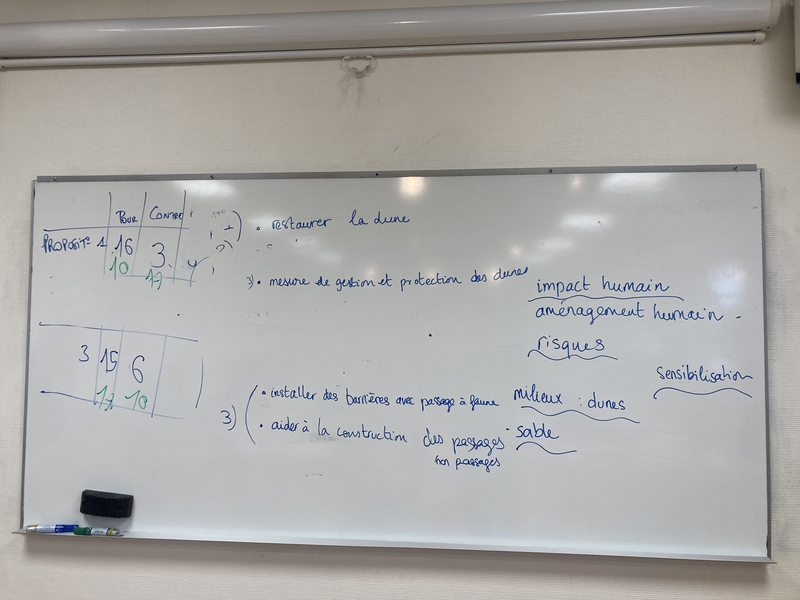 POUR CONTRE
PROPOSIT° 1 16 3
10 17
• restaurer la dune
3) • mesure de gestion et protection des dunes
impact humain
aménagement humain -
risques
sensibilisation
3 15 6
17 10
3) • installer des barrières avec passage à faune
milieux : dunes
• aider à la construction des passages
sable
nos passages